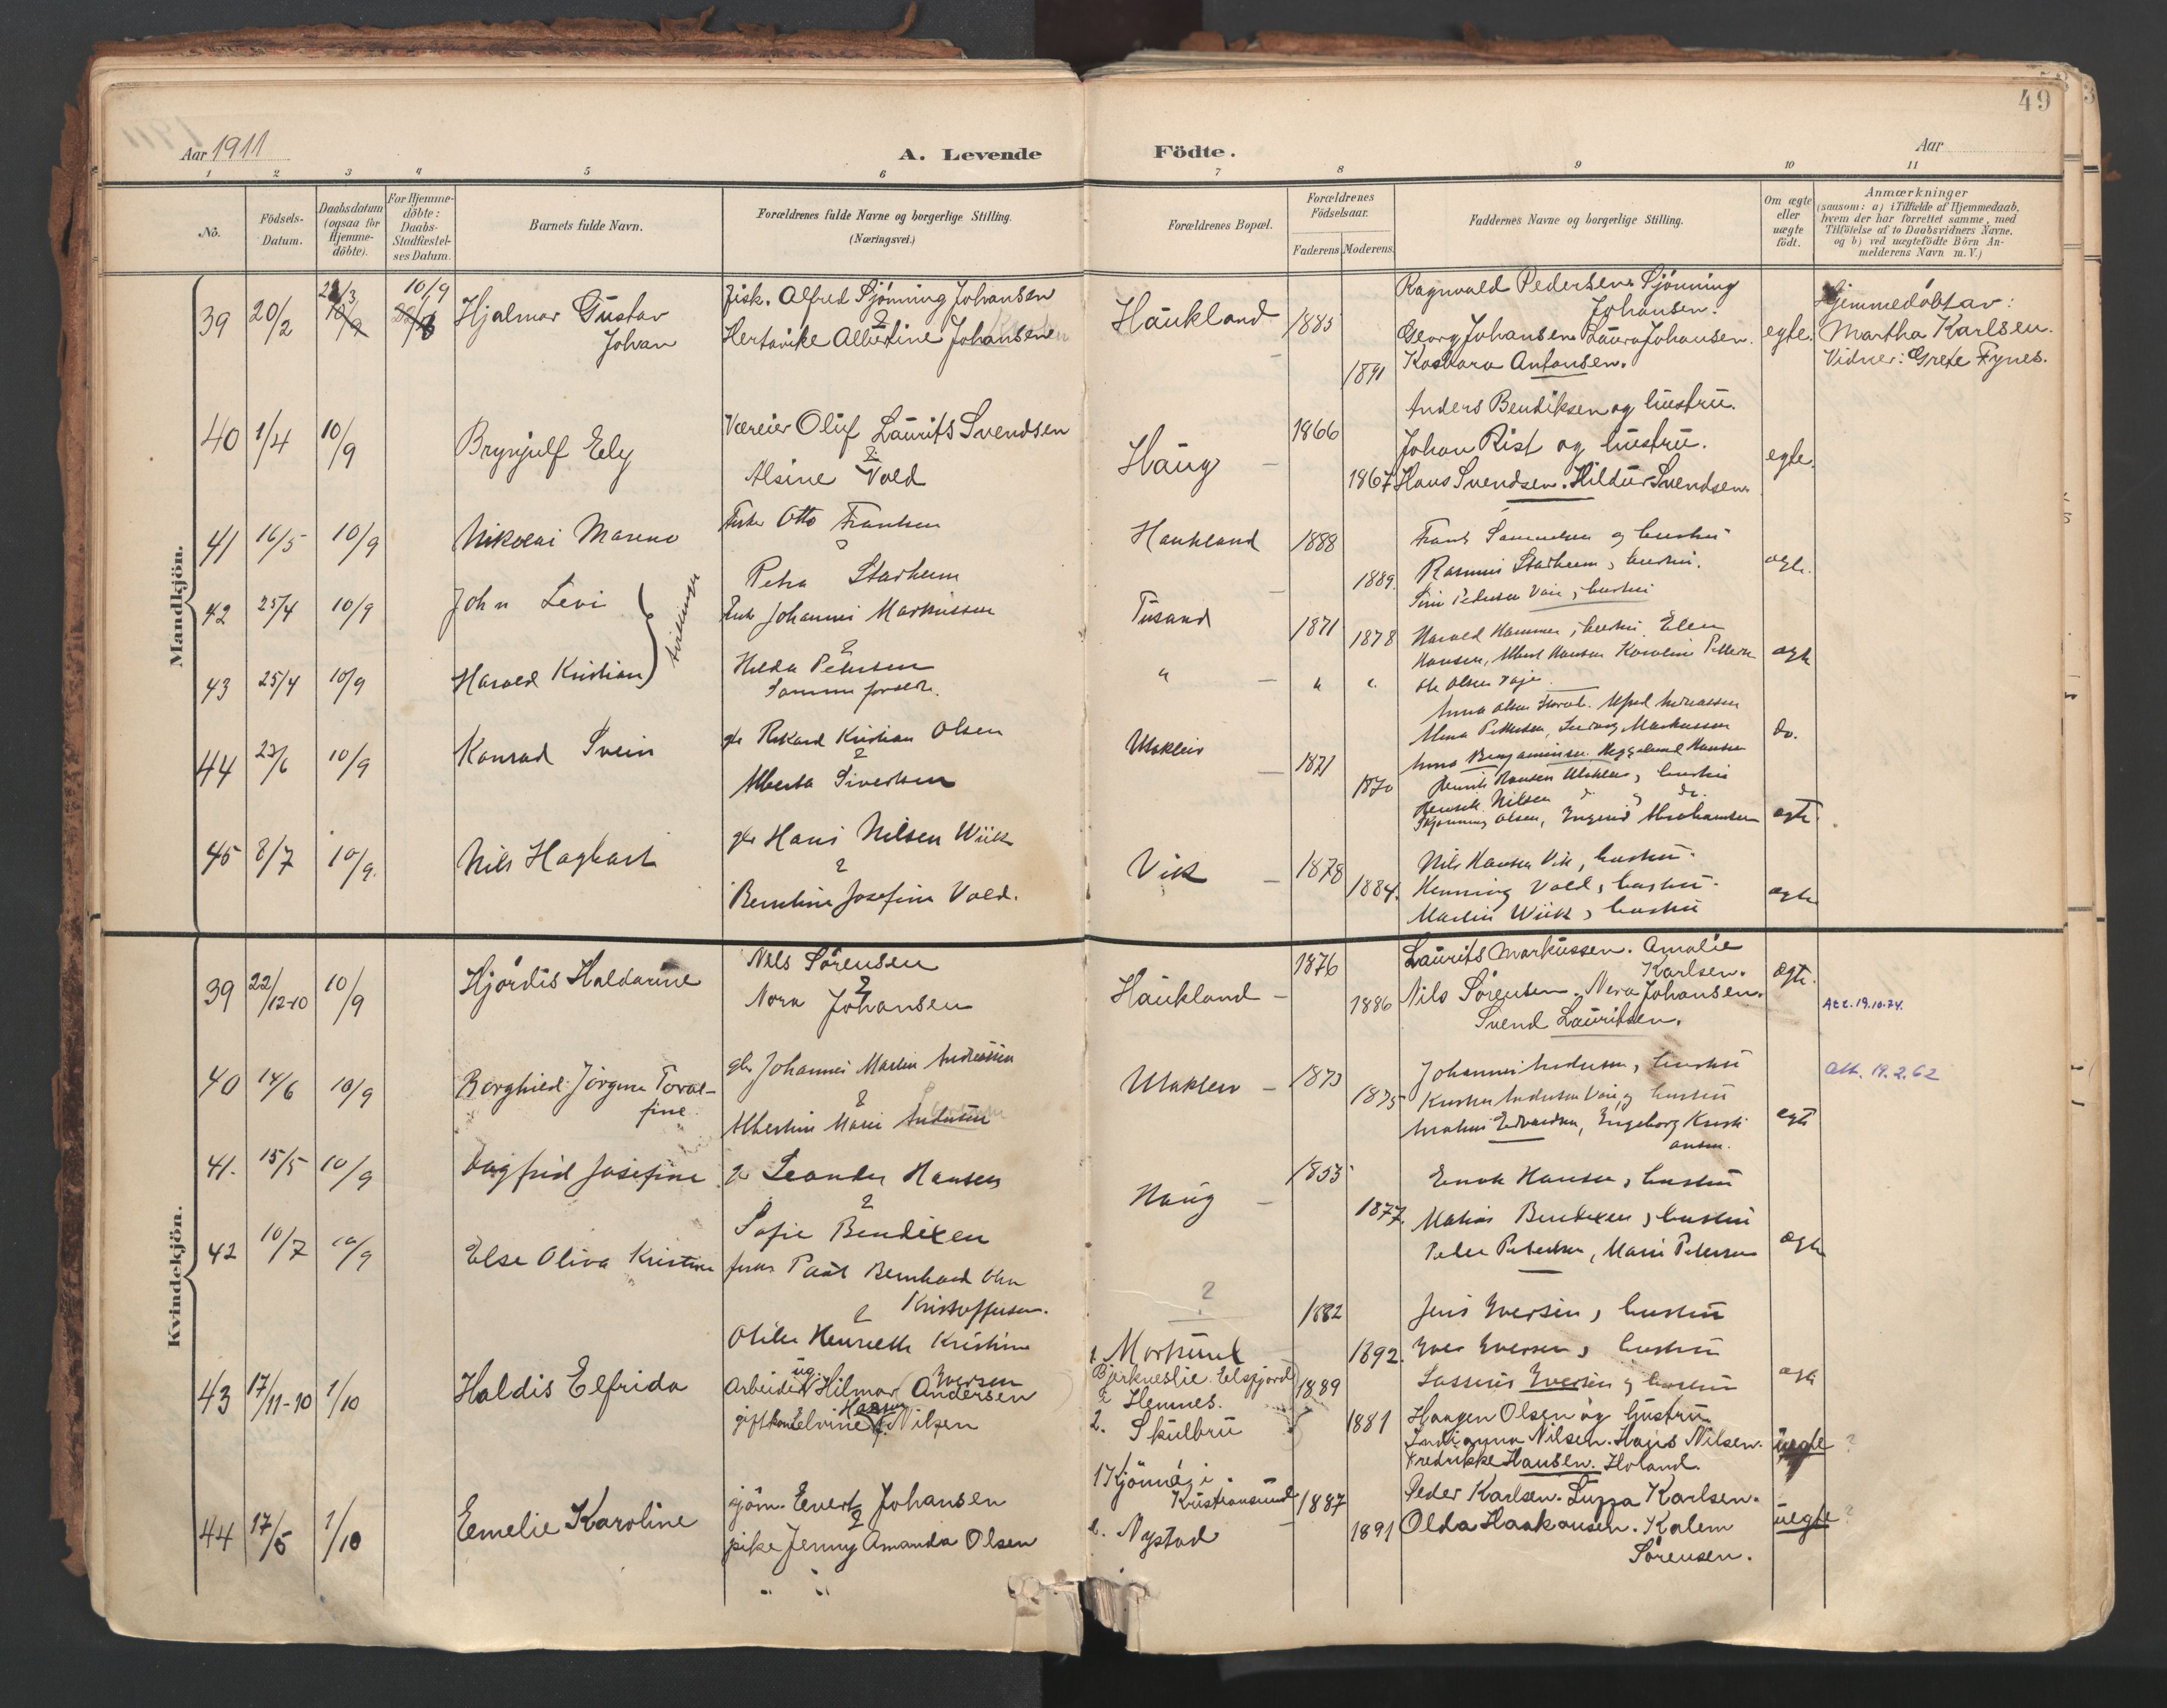 49
Aar 1911
A. Levende Födte.
Aar
1 2 3 4 5 6 7 8 9 10 11
No.
Födsels-
Datum.
Daabsdatum
(ogsaa for
Hjemme-
döbte).
For Hjemme-
döbte:
Daabs-
Stadfæstel-
ses Datum.
Barnets fulde Navn.
Forældrenes fulde Navne og borgerlige Stilling.
(Næringsvei.)
Forældrenes Bopæl.
Forældrenes
Födselsaar.
Faderens Moderens
Faddernes Navne og borgerlige Stilling.
Om ægte
eller
uægte
födt.
Anmærkninger
(saasom: a) i Tilfælde af Hjemmedaab,
hvem der har forrettet samme, med
Tilföielse af to Daabsvidners Navne.
og b) ved uægtefödte Börn An-
melderens Navn m. V.)
Mandkjön.
39 20/2 10/9
Hjalmar Gustav
Johan
Fisk. Alfred Sjönning Johansen
&
Hertavike Albertine Johansen
Haukland
1885
1891
Ragnvald Pedersen. Sjönning
Johansen.
Georg Johansen. Laura Johansen.
Kaspara Antonsen.
egte.
Hjemmedöbt av:
Martha Karlsen.
Vidner: Grete Fynes.
40 1/4 10/9
Brynjulf Eely
Væreier Oluf Laurits Svendsen
&
Alsine Vold
Haug
1866
1867
Anders Bendiksen og hustru.
Johan Rist og hustru.
Hans Svendsen. Hildur Svendsen.
egte.
41 16/5 10/9
Nikolai Mareno
Fisker Otto Frantsen
&
Petra Starheim
Haukland
1888
1889.
Frants Samuelsen og hustru
Rasmus Starheim, hustru.
Pedersen Vaie, hustru
egte.
42 25/4 10/9
John Levi
tvillinger
Fisk Johannes Markussen
&
Hilda Petersen
Tusand
1871 1878
Harald Hammer, hustru. Elen
Hansen, Albert Hansen Karoline Pettersen
egte
43 25/4 10/9
Harald Kristian
Samme foreldr.
" " "
Ole Olsen
Anna Olsen Alfred Andreassen
Alma Pettersen, Ludvig Markussen
do.
44 23/6 10/9
Konrad Svein
gbr Rikard Kristian Olsen
&
Alberta Sivertsen
Utakleiv
1871
1870
Anna Benjaminsen. Hansen
Henrik Hansen Utakleiv, hustru
Henrik Nilsen
Skjönning Olsen, Ingrid Abrahamsen
egte.
45 8/7 10/9.
Nils Hagbart
gbr Hans Nilsen Wiik
&
Berntine Josefine Vold.
Vik
1878
1884.
Nils Hansen Vik, hustru.
Henning Vold, hustru.
Martin Wiik, hustru
egte
Kvindekjön.
39 22/12-10 10/9
Hjördis Haldarine
Nils Sörensen
&
Nora Johansen
Haukland
1876
1886
Laurits Markussen. Amalie
Karlsen.
Nils Sörensen. Nera Johansen.
Svend Lauritsen.
egte.
Att. 19.10.74.
40 14/6 10/9
Borghild Jörgine Toral-
fine
gbr Johannes Martin Andreassen
&
Albertine Marie Andersen
Utakleiv
1873
1875
Johannes Andersen, hustru
Kristen Andersen Vaie, hustru
Edvardsen, Ingeborg Kristi
ansen.
egte
Att. 19.2.62
41. 15/5 10/9
Dagfrid Josefine
gbr Leander Hansen
&
Sofie Bendixen
Haug
1853
1877.
Enok Hansen, hustru
Matias Bendixen, hustru
Peder Pedersen, Marie Petersen
egte
42 10/7 10/9
Else Oliva Kristine
fisker Paal Bernhard Olai
Kristoffersen.
&
Otilie Henriette Kristine
Iversen
?
Mortsund
1882
1892.
Jens Iversen, hustru
Iver Iversen, hustru
Lassenis Iversen, hustru
egte
43 17/11-10 1/10
Haldis Elfrida
ug.
Arbeider Hilmar Andersen
gift kone Elvine Hansen f. Nilsen
Bjerkneslie. Elsfjord
i Hemnes.
2. Skulbru
1889
1881
Haagen Olsen og hustru.
Indianna Nilsen. Hans Nilsen.
Fredrikke Hansen. Holand.
uegte ?
44 17/5 1/10
Eemelie Karoline
sjöm. Evert Johansen
&
pike Jenny Amanda Olsen
" "
1 Kjönnö i
Kristiansund
2. Nystad
1887
1891
Peder Karlsen. Luzza Karlsen.
Olda Haakansen. Kalem
Sörensen.
uegte ?